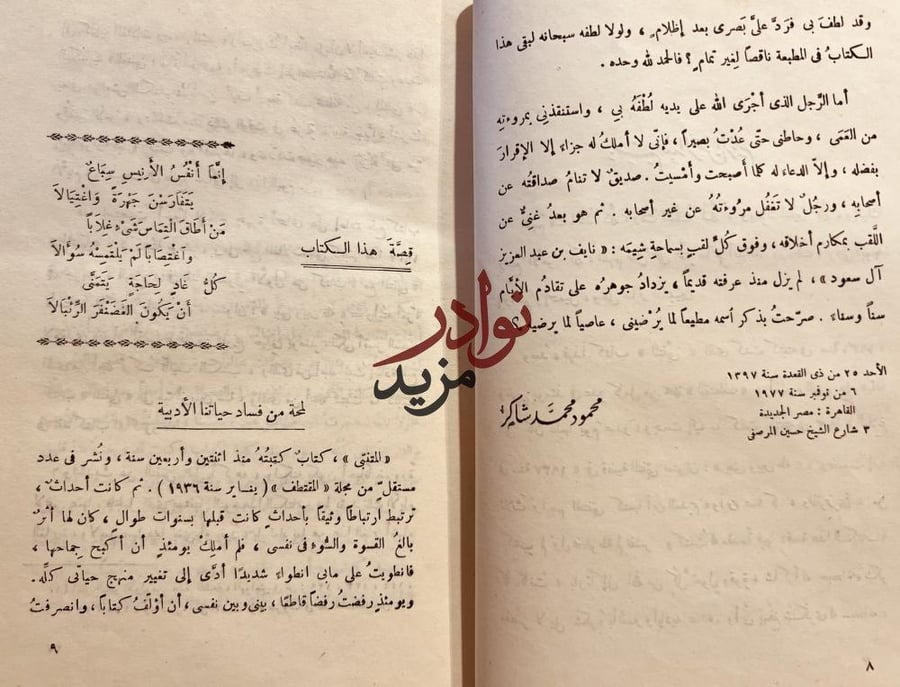 وقد لطف بى فردَّ علىَّ بَصرى بعد إظلامٍ ، ولولا لطفه سبحانه لبقى هذا
الكتابُ فى المطبعة ناقصاً لِغير تمامٍ ؟ فالحمد لله وحده .
أما الرَّجل الذى أجْرَى الله على يديه لُطْفَهُ بي ، واستنقذني بمروءتِهِ
من العَمَى ، وحاطنى حتَّى عُدْتُ بصيراً ، فإنّى لا أملك له جزاء إلا الإقرارَ
بفضله ، وإلاّ الدعاء له كلما أصبحت وأمْسيتُ . صديقٌ لا تنامُ صداقتُه عن
أصحابِه ، ورجُلٌ لا تَغْفُل مرُوءتُهُ عن غير أصحابه . ثم هو بعدُ غنىٌّ عن
اللّقب بمكارم أخلاقه ، وفوق كُلِّ لقبٍ بسماحةِ شِيمَه : « نايف بن عبد العزيز
آل سعود » ، لم يزل منذ عرفته قديماً ، يزدادُ جوهرهُ على تقادُم الأيَّام
سناً وسناءً . صرّحتُ بذكر أسمه مطيعاً لما يُرْضينى ، عاصياً لما يرضيه
الأحد ٢٥ من ذى القعدة سنة ١٣٩٧
٦ من نوفمبر سنة ١٩٧٧
القاهرة : مصر الجديدة
٣ شارع الشيخ حسين المرصفى
محمود محمد شاكر
٨
إنَّمَا أَنْفُسُ الأَنِيسِ سِبَاعٌ
يَتَفَارَسْنَ جَهْرَةً وَاغْتِيَالَا
مَنْ أَطَاقَ الْتِمَاسَ شَىْءٍ غِلَاباً
وَاغْتِصَاباً لَمْ يَلْتَمِسْهُ سُؤَالَا
كُلُّ غَادٍ لِحَاجَةٍ يَتَمَنَّى
أَنْ يَكُونَ الغَضَنْفَرَ الرِّئْبَالَا
قِصَّةُ هذا الكتاب
لمحة من فساد حياتنا الأدبية
« المتنبّى » ، كتابٌ كتبتُه منذ اثنتين وأربعين سنة ، ونُشر فى عدد
مستقلّ من مجلة « المقتطف » ( يناير سنة ١٩٣٦ ) . ثم كانت أحداثٌ ،
ترتبط ارتباطاً وثيقاً بأحداث كانت قبلها بسنوات طوالٍ ، كان لها أثرٌ
بالغُ القسوة والسُّوء فى نفسى ، فلم أملكْ يومئذٍ أن أكبح جِماحها ،
فانطويتُ على مابى انطواء شديدًا أدَّى إلى تغيير منهج حياتى كلِّه .
ويومئذٍ رفضتُ رفضاً قاطعاً ، بينى وبين نفسى ، أن أؤلّف كتاباً ، وانصرفتُ
٩
نوادر
مزيد